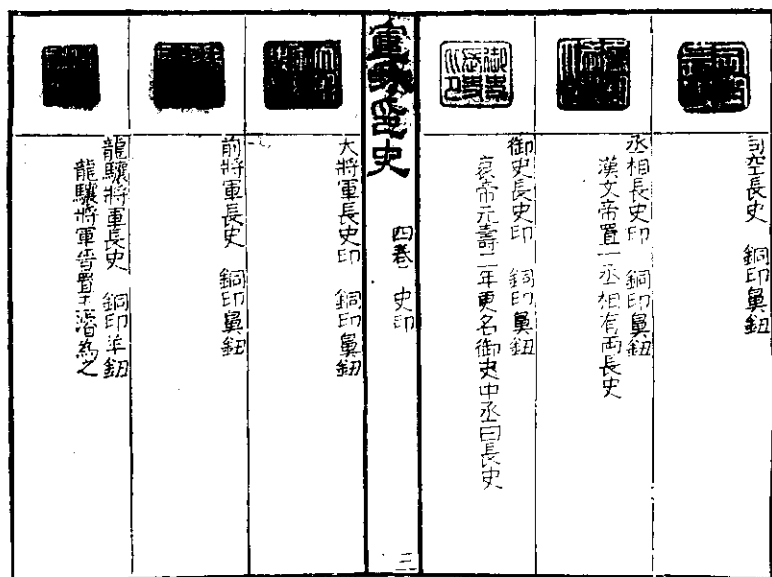 司空長史 銅印鼻鈕
丞相長史印 銅印鼻鈕
漢文帝置一丞相有兩長史
御史長史印 銅印鼻鈕
哀帝元壽二年更名御史中丞曰長史
印史
四卷 史印
三
大將軍長史印 銅印鼻鈕
前將軍長史 銅印鼻鈕
龍驤將軍長史 銅印羊鈕
龍驤將軍晉置王濬為之